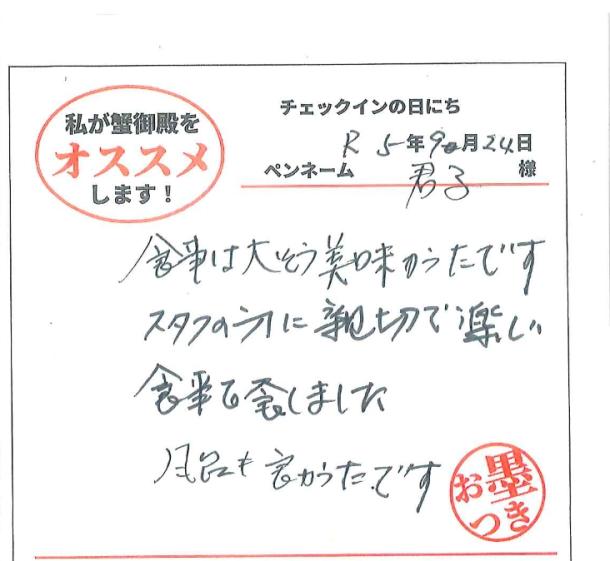 私が蟹御殿を
オススメ
します！
チェックインの日にち
R 5年9月24日
ペンネーム 君子 様
食事は大そう美味かったです
スタフの方に親切で楽しい
食事を しました
風呂も良かったです
お墨
つき